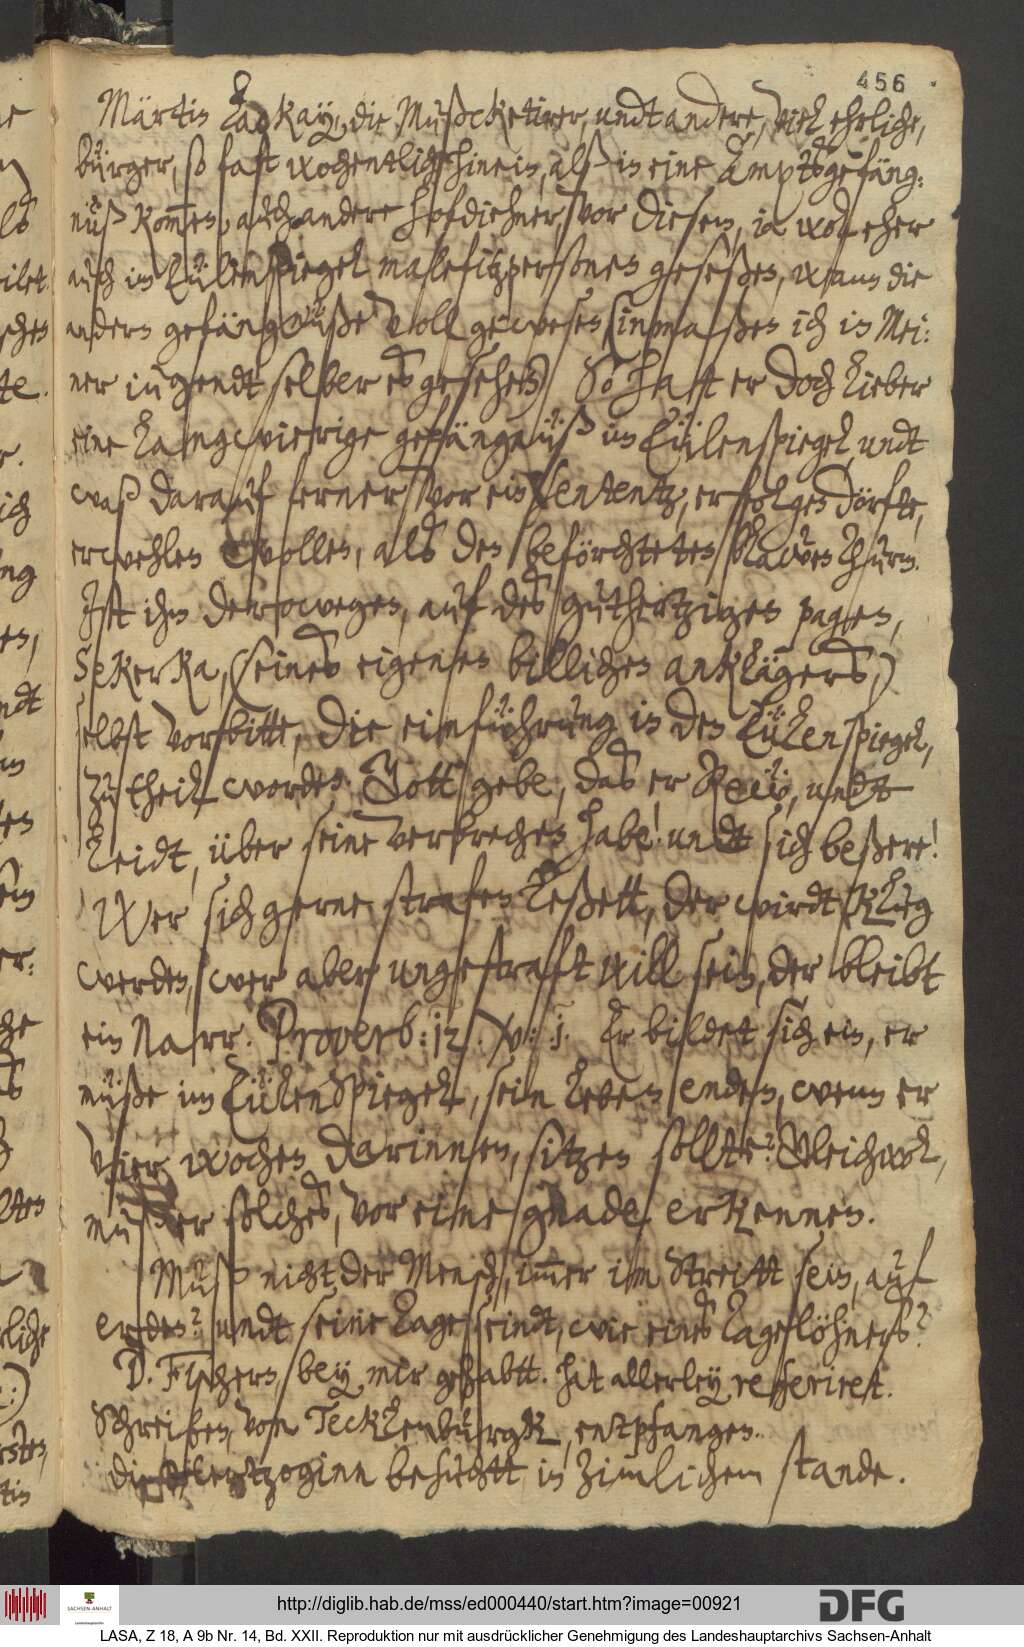 456
Märtin Lackay, die Mußcketirer, undt andere, viel ehrliche,
bürger, so fast wochentlich hinein, alß in eine Ampts gefäng:
nüß kommen, auch andere hofdiehner, vor diesem, ia wol eher
auch im Eülenspiegel malefitzpersonen geseßen, wann die
andern gefängnüße voll gewesen, (inmaßen ich in Mei:
ner iugendt selber es gesehen) So hatt er doch lieber
eine langwierige gefängnüß im Eülenspiegel, undt
waß darauf ferner vor ein sententz, erfolgen dörfte,
erwehlen wollen, als den beförchteten blawen Thurm.
Ist ihm derowegen, auf des guthertzigen pagen,
Sekerka, (seines eigenen billichen anklägers,)
selbst vorbitte, die einführung in den Eülenspiegel,
zu theil worden. Gott gebe, das er Reüw, undt
Leidt, über seine verbrechen habe! undt sich beßere!
Wer sich gerne strafen leßett, der wirdt klug
werden, wer aber ungestraft will sein, der bleibt
ein Narr. Proverb: 12. v: 1. Er bildet sich ein, er
müße im Eülenspiegel, sein leben enden, wenn er
vier wochen darinnen, sitzen sollte? Gleichwol,
muß er solches, vor eine gnade erkennen.
Muß nicht der Mensch, immer im Streitt sein, auf
erden? undt seine Tage seindt, wie eines Tagelöhners?
D. Fischern, bey mir gehabtt. hat allerley referiret.
Schreiben, von Tecklenburgk, entpfangen.
Die Hertzoginn besuchtt, in zimlichem stande.
http://diglib.hab.de/mss/ed000440/start.htm?image=00921
DFG
SACHSEN-ANHALT
LASA, Z 18, A 9b Nr. 14, Bd. XXII. Reproduktion nur mit ausdrücklicher Genehmigung des Landeshauptarchivs Sachsen-Anhalt